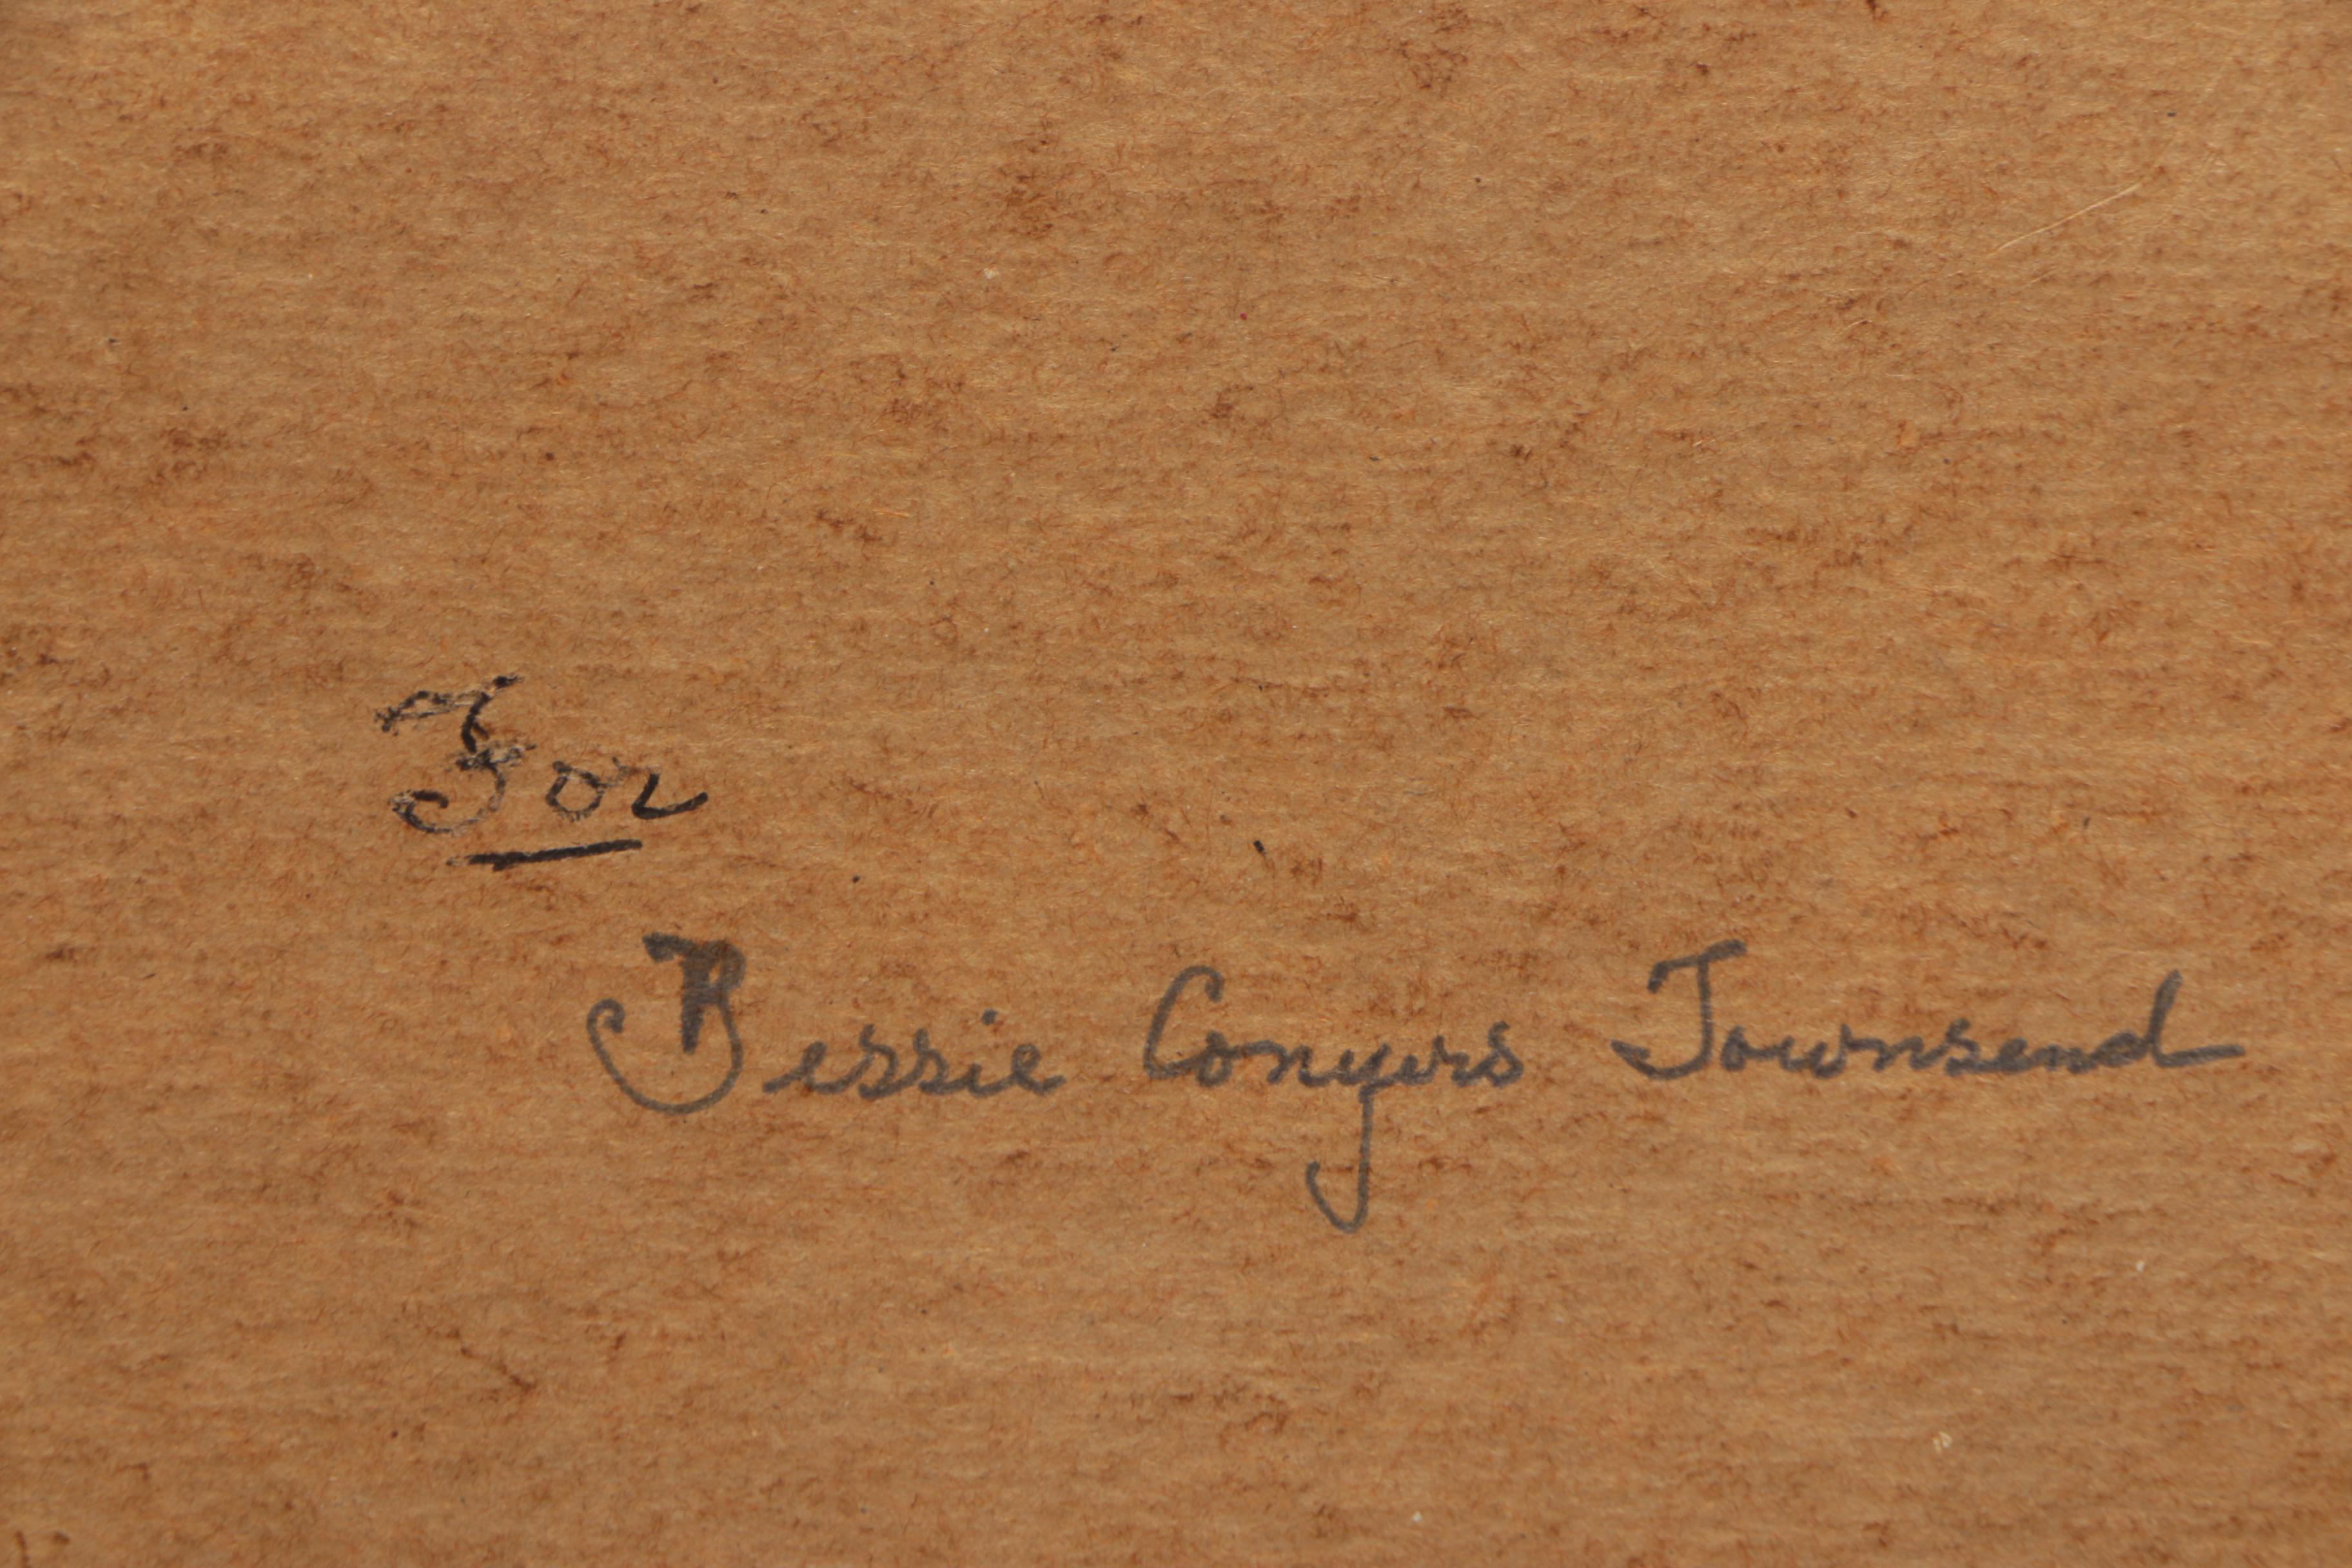 For
Bessie Conyers Townsend